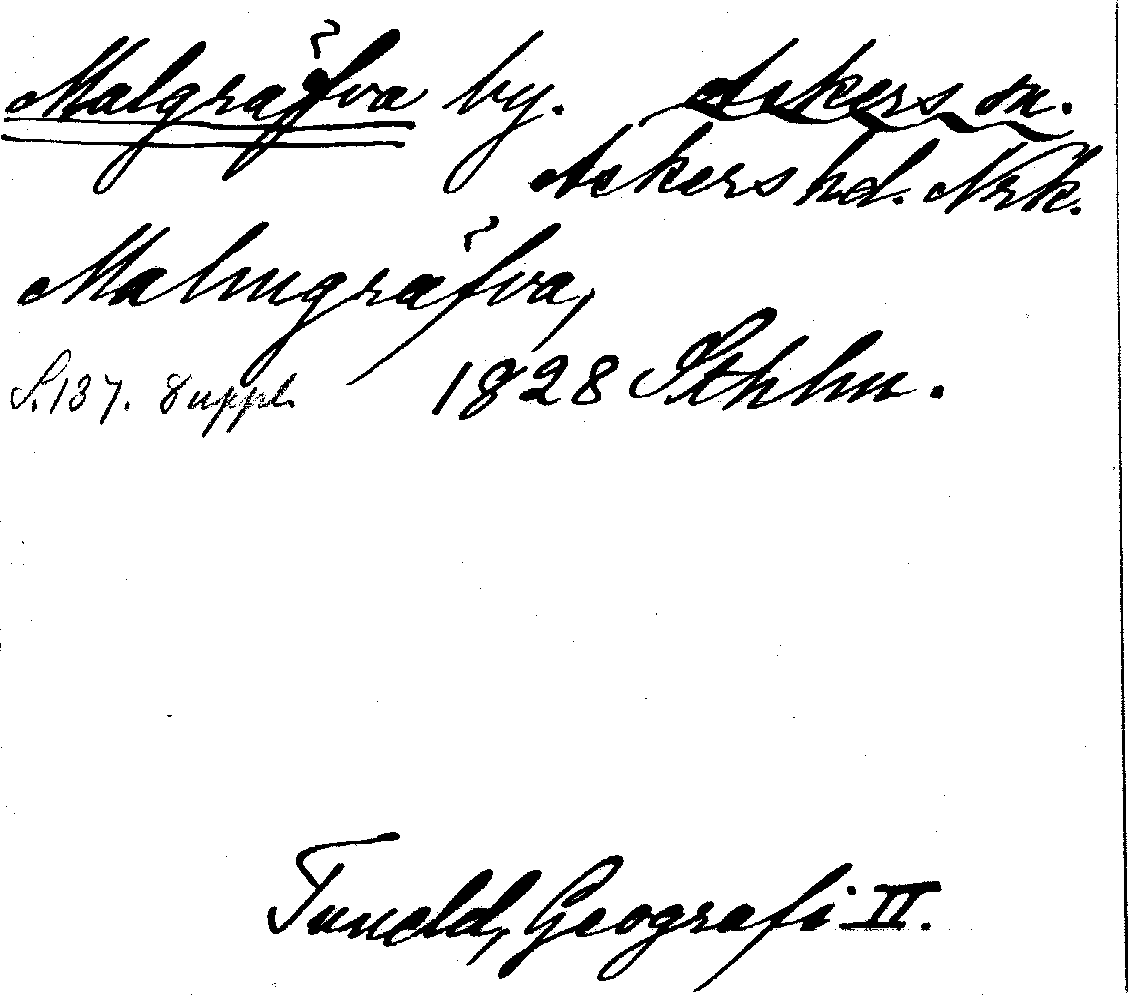 Malgräfva by. Askers sn.
Askers hd. Nrk.
Malmgräfva,
S. 137. Suppl. 1828 Sthlm.
Tuneld, Geografi II.